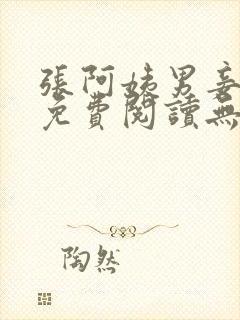 張阿姨男妾
免費閱讀無
陶然